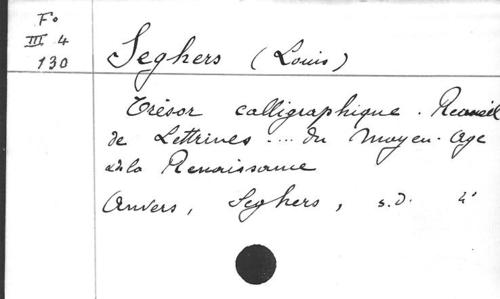 Fo
III 4
130
Seghers (Louis)
Trésor calligraphique. Recueil
de Lettrines .... du Moyen-Age
et de la Renaissance
Anvers, Seghers, s.d. 4°